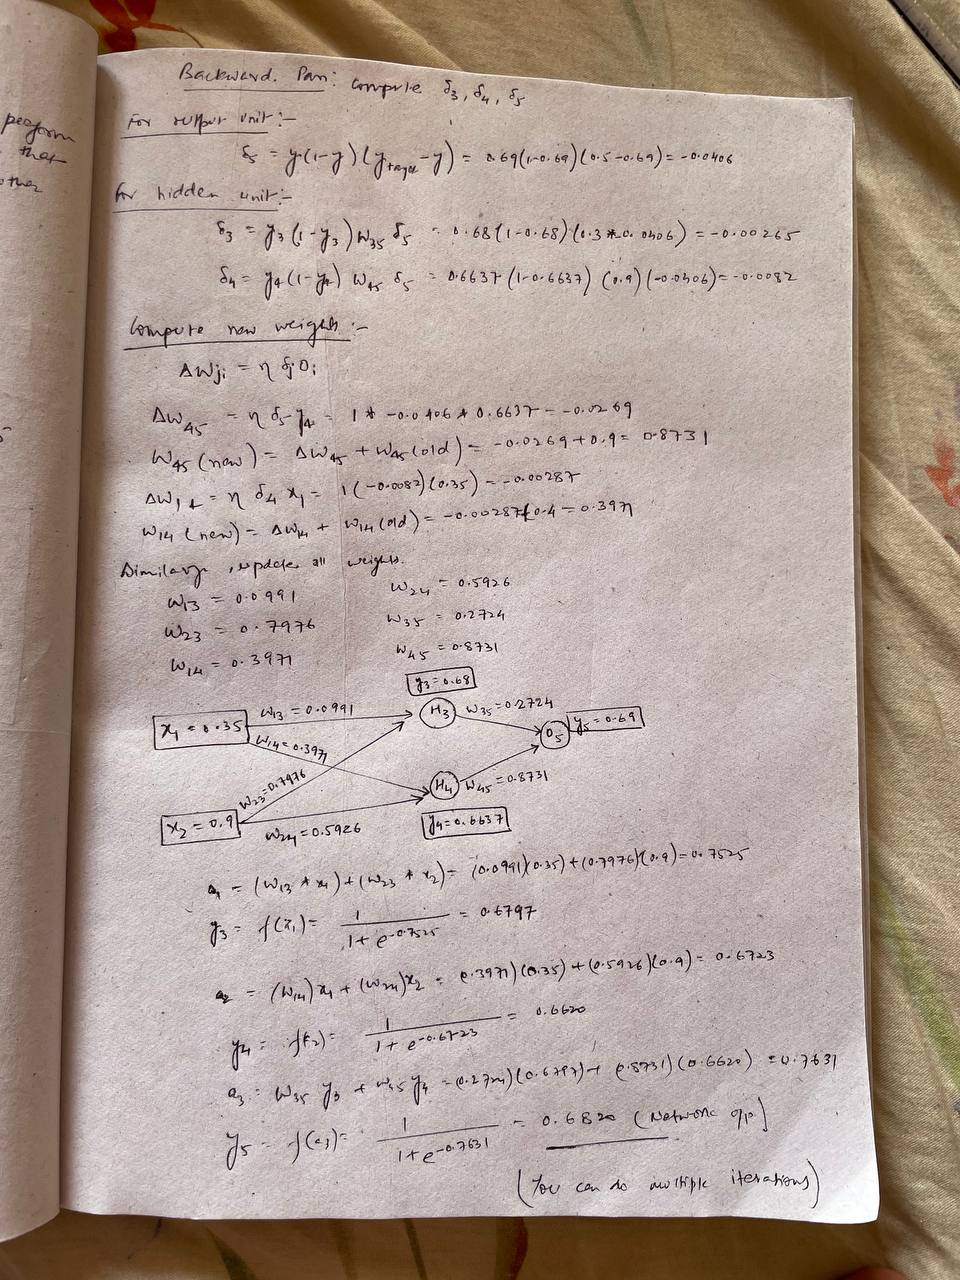 perform
that
other
Backward. Pass: compute δ3, δ4, δ5
For output unit:-
δ5 = y(1-y)(ytarget-y) = 0.69(1-0.69)(0.5-0.69) = -0.0406
for hidden unit:-
δ3 = y3(1-y3) W35 δ5 = 0.68(1-0.68)(0.3*0.0406) = -0.00265
δ4 = y4(1-y4) W45 δ5 = 0.6637(1-0.6637)(0.9)(-0.0406) = -0.0082
Compute new weights:-
ΔWji = η δj Oi
ΔW45 = η δ5 y4 = 1 * -0.0406 * 0.6637 = -0.0269
W45(new) = ΔW45 + W45(old) = -0.0269+0.9 = 0.8731
ΔW14 = η δ4 x1 = 1(-0.0082)(0.35) = -0.00287
W14(new) = ΔW14 + W14(old) = -0.00287+0.4 = 0.3971
Similarly, update all weights.
W13 = 0.0991 W24 = 0.5926
W23 = 0.7976 W35 = 0.2724
W14 = 0.3971 W45 = 0.8731
y3=0.68
x1 = 0.35 W13 = 0.0991 H3 W35=0.2724
W14=0.3971 O5 y5=0.69
W23=0.7976 H4 W45=0.8731
x2 = 0.9 W24=0.5926 y4=0.6637
a1 = (W13 * x1)+(W23 * x2) = (0.0991)(0.35)+(0.7976)(0.9) = 0.7525
y3 = f(a1) = 1/1+e-0.7525 = 0.6797
a2 = (W14)x1 + (W24)x2 = 0.3971)(0.35)+(0.5926)(0.9) = 0.6723
y4 = f(a2) = 1/1+e-0.6723 = 0.6620
a3 = W35 y3 + W45 y4 = (0.2724)(0.6797)+(0.8731)(0.6620) = 0.7631
y5 = f(a3) = 1/1+e-0.7631 = 0.6820 (Network o/p)
(You can do multiple iterations)